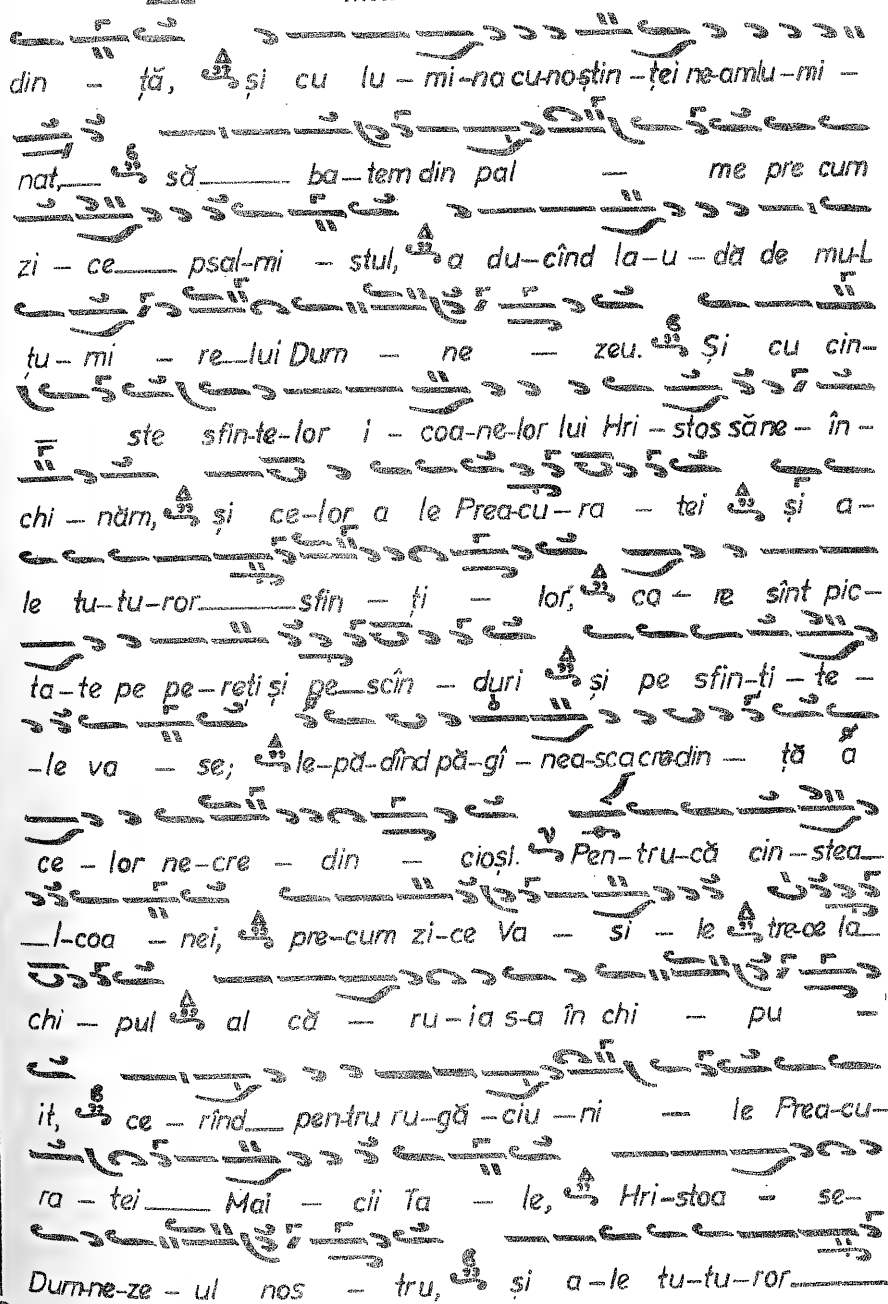 din – ță, și cu lu – mi-na cu-noștin – ței ne-amlu – mi –
nat, să ba – tem din pal – me pre cum
zi – ce psal-mi – stul, a du – cînd la – u – dă de mul-
țu – mi – re lui Dum – ne – zeu. Și cu cin-
ste sfin-te-lor i – coa-ne-lor lui Hri – stos să ne – în –
chi – năm, și ce-lor a le Prea-cu – ra – tei și a-
le tu-tu-ror sfin – ți – lor, ca – re sînt pic-
ta-te pe pe-reți și pe scîn – duri și pe sfin-ți – te –
-le va – se; le-pă-dînd pă-gî – nea-sca credin – ță a
ce – lor ne-cre – din – cioși. Pen-tru-că cin – stea
I-coa – nei, pre-cum zi-ce Va – si – le tre-ce la
chi – pul al că – ru-ia s-a în chi – pu –
it, ce – rînd pen-tru ru-gă – ciu – ni – le Prea-cu-
ra – tei Mai – cii Ta – le, Hri-stoa – se-
Dum-ne-ze – ul nos – tru, și a-le tu-tu-ror